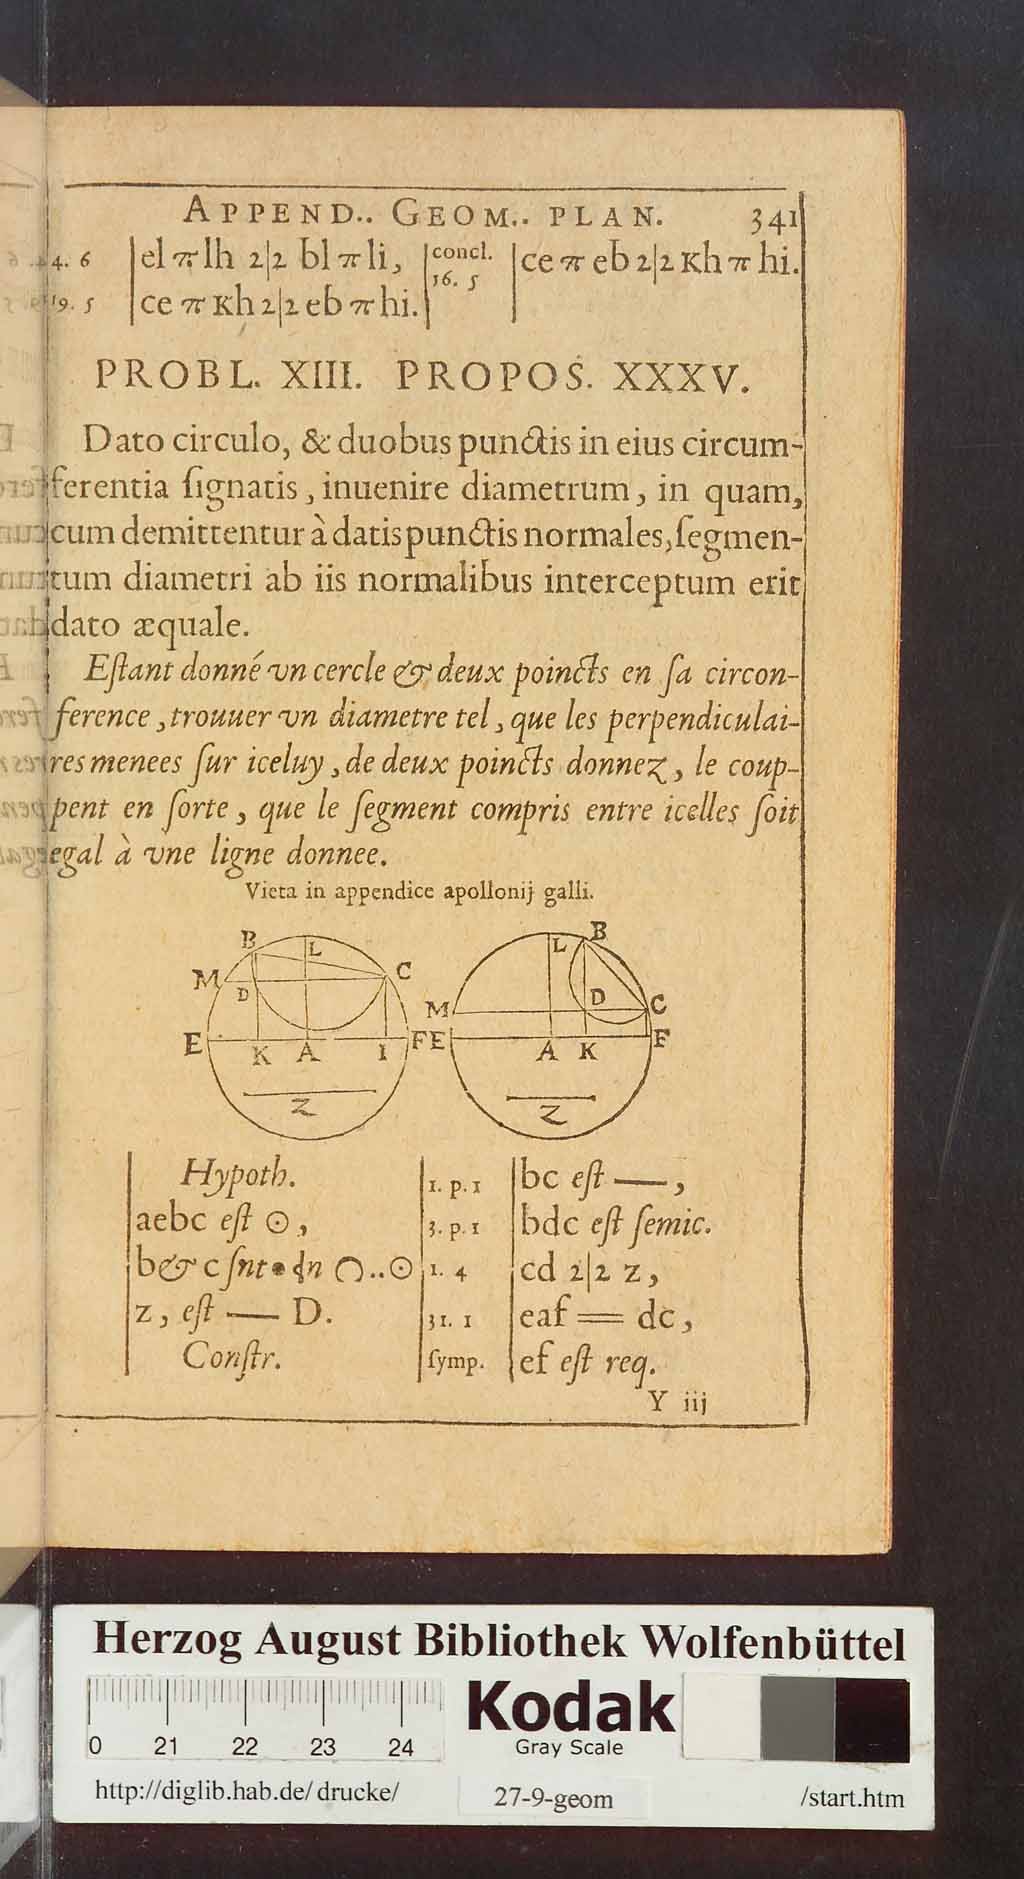 APPEND.. GEOM.. PLAN. 341
4. 6 el π lh 2|2 bl π li, concl. ce π eb 2|2 Kh π hi.
16. 5
19. 5 ce π Kh 2|2 eb π hi.
PROBL. XIII. PROPOS. XXXV.
Dato circulo, & duobus punctis in eius circum-
ferentia ſignatis, inuenire diametrum, in quam,
cum demittentur à datis punctis normales, ſegmen-
tum diametri ab iis normalibus interceptum erit
dato æquale.
Eſtant donné vn cercle & deux poincts en ſa circon-
ference, trouuer vn diametre tel, que les perpendiculai-
res menees ſur iceluy, de deux poincts donnez, le coup-
pent en ſorte, que le ſegment compris entre icelles ſoit
egal à vne ligne donnee.
Vieta in appendice apollonij galli.
B L C M D E K A I F Z
L B D M C E A K F Z
Hypoth. 1. p. 1 bc eſt —,
aebc eſt ⊙, 3. p. 1 bdc eſt ſemic.
b & c ſnt • dn ◠..⊙ 1. 4 cd 2|2 z,
z, eſt — D. 31. 1 eaf = dc,
Conſtr. ſymp. ef eſt req.
Y iij
Herzog August Bibliothek Wolfenbüttel
0 21 22 23 24
Kodak
Gray Scale
http://diglib.hab.de/drucke/ 27-9-geom /start.htm